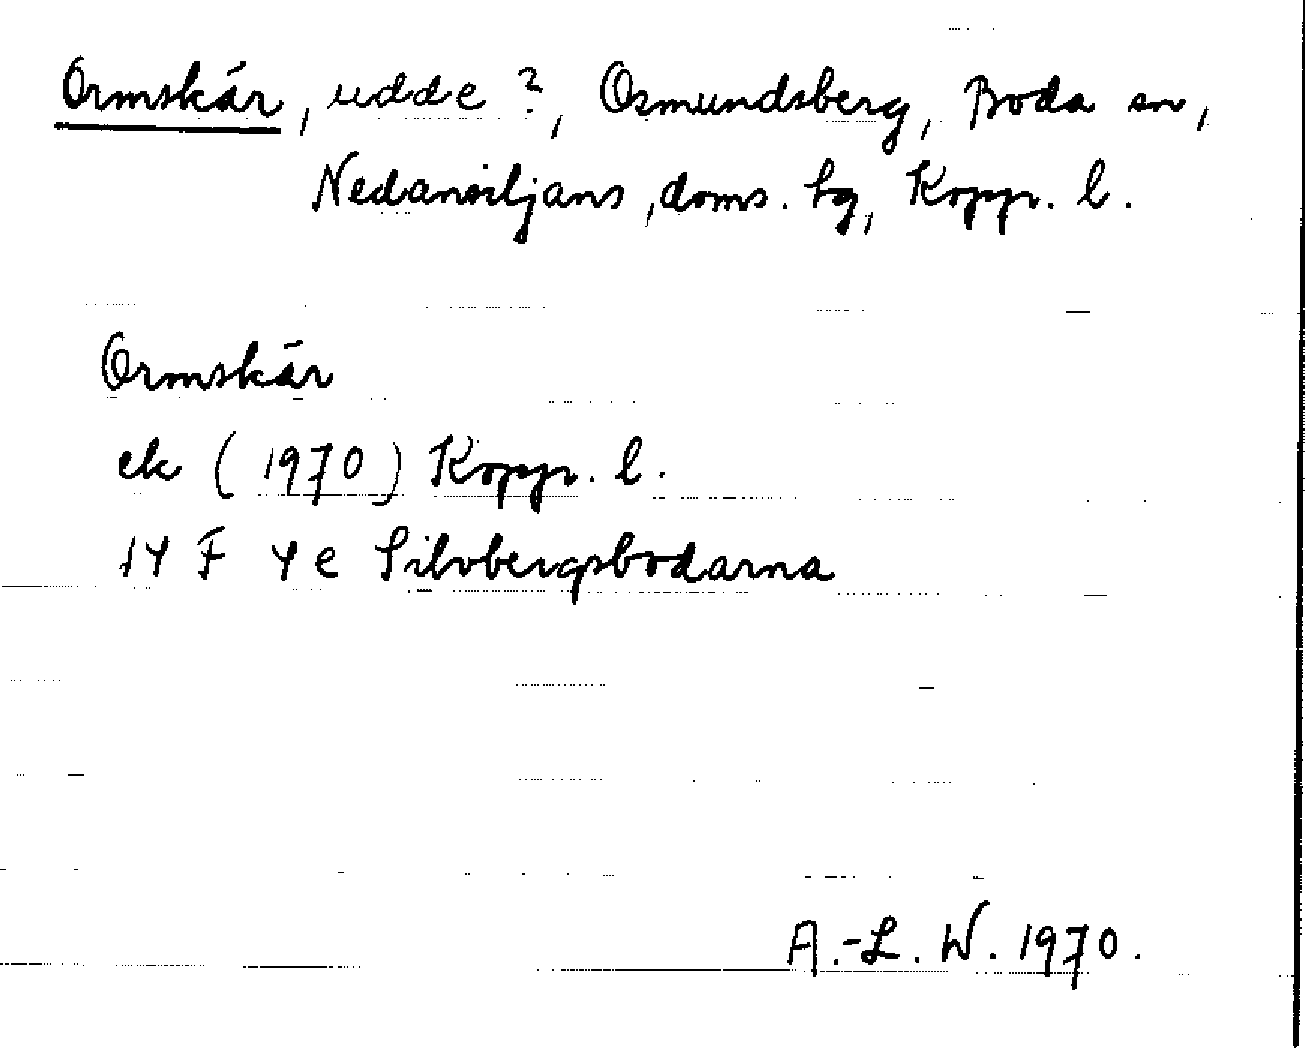 Ormskär, udde?, Osmundsberg, Boda sn,
Nedansiljans, doms. hg, Kopp. l.
Ormskär
ek (1970) Kopp. l.
14 F 4e Silvbergsbodarna
A.-L. W. 1970.